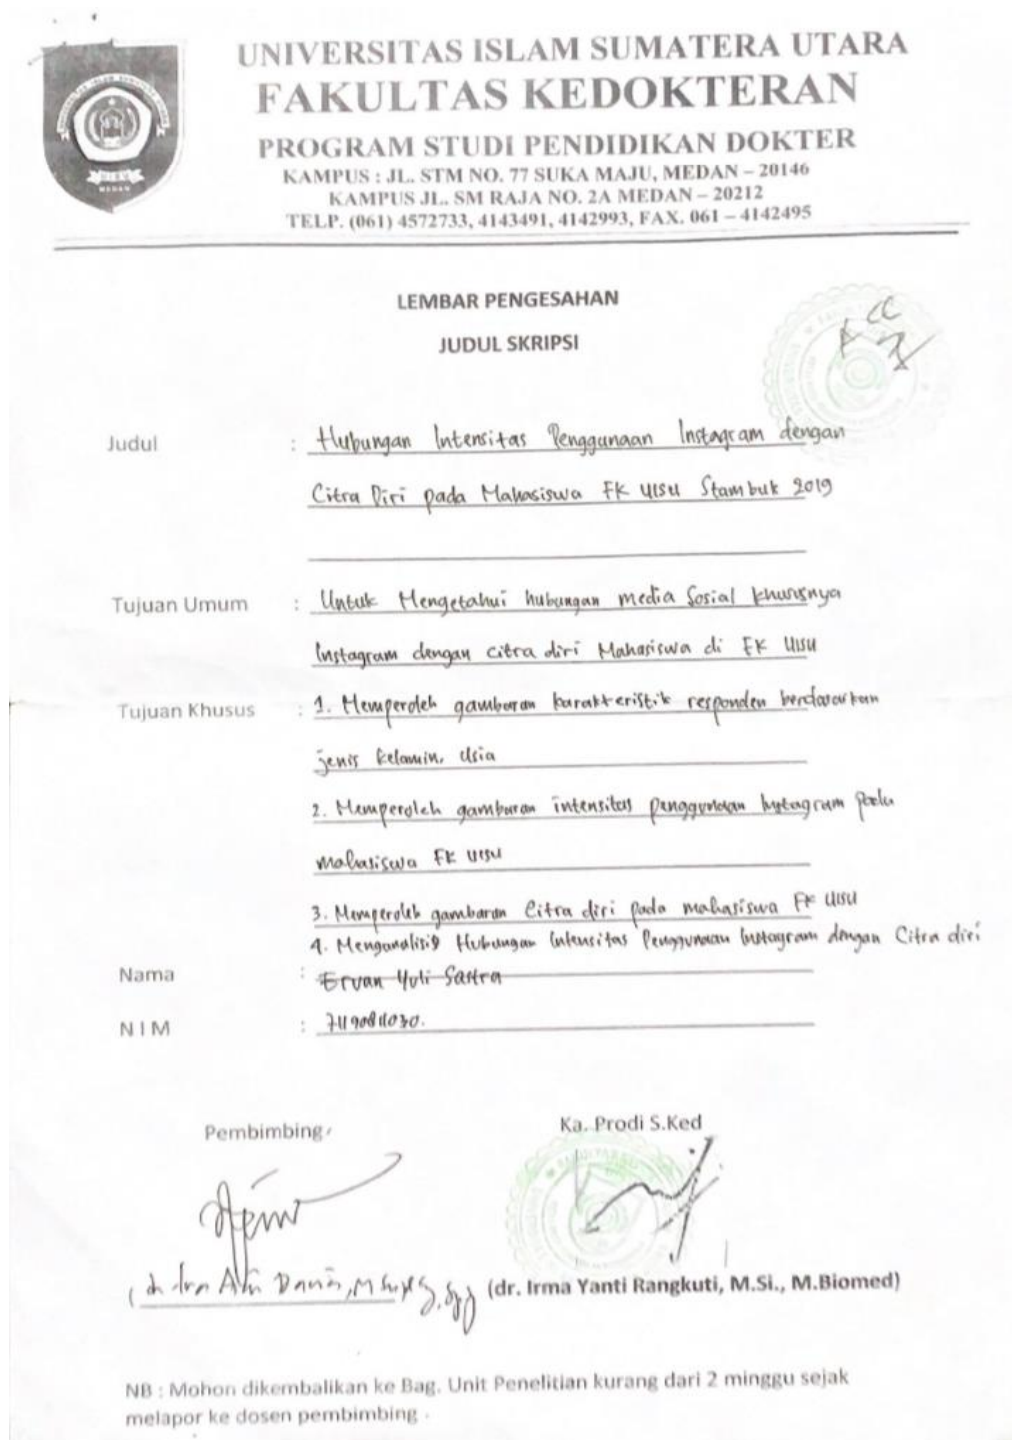 UNIVERSITAS ISLAM SUMATERA UTARA
FAKULTAS KEDOKTERAN
PROGRAM STUDI PENDIDIKAN DOKTER
KAMPUS : JL. STM NO. 77 SUKA MAJU, MEDAN – 20146
KAMPUS JL. SM RAJA NO. 2A MEDAN – 20212
TELP. (061) 4572733, 4143491, 4142993, FAX. 061 – 4142495
MEDAN
LEMBAR PENGESAHAN
JUDUL SKRIPSI
Acc
Judul : Hubungan Intensitas Penggunaan Instagram dengan
Citra Diri pada Mahasiswa FK UISU Stambuk 2019
Tujuan Umum : Untuk Mengetahui hubungan media Sosial khususnya
Instagram dengan citra diri Mahasiswa di FK UISU
Tujuan Khusus : 1. Memperoleh gambaran karakteristik responden berdasarkan
jenis kelamin, Usia
2. Memperoleh gambaran intensitas penggunaan Instagram pada
mahasiswa FK UISU
3. Memperoleh gambaran Citra diri pada mahasiswa FK UISU
4. Menganalisis Hubungan Intensitas Penggunaan Instagram dengan Citra diri
Nama : Ervan Yuli Sastra
NIM : 7119081030.
Pembimbing
Ka. Prodi S.Ked
(dr. Irma Yanti Rangkuti, M.Si., M.Biomed)
NB : Mohon dikembalikan ke Bag. Unit Penelitian kurang dari 2 minggu sejak
melapor ke dosen pembimbing .